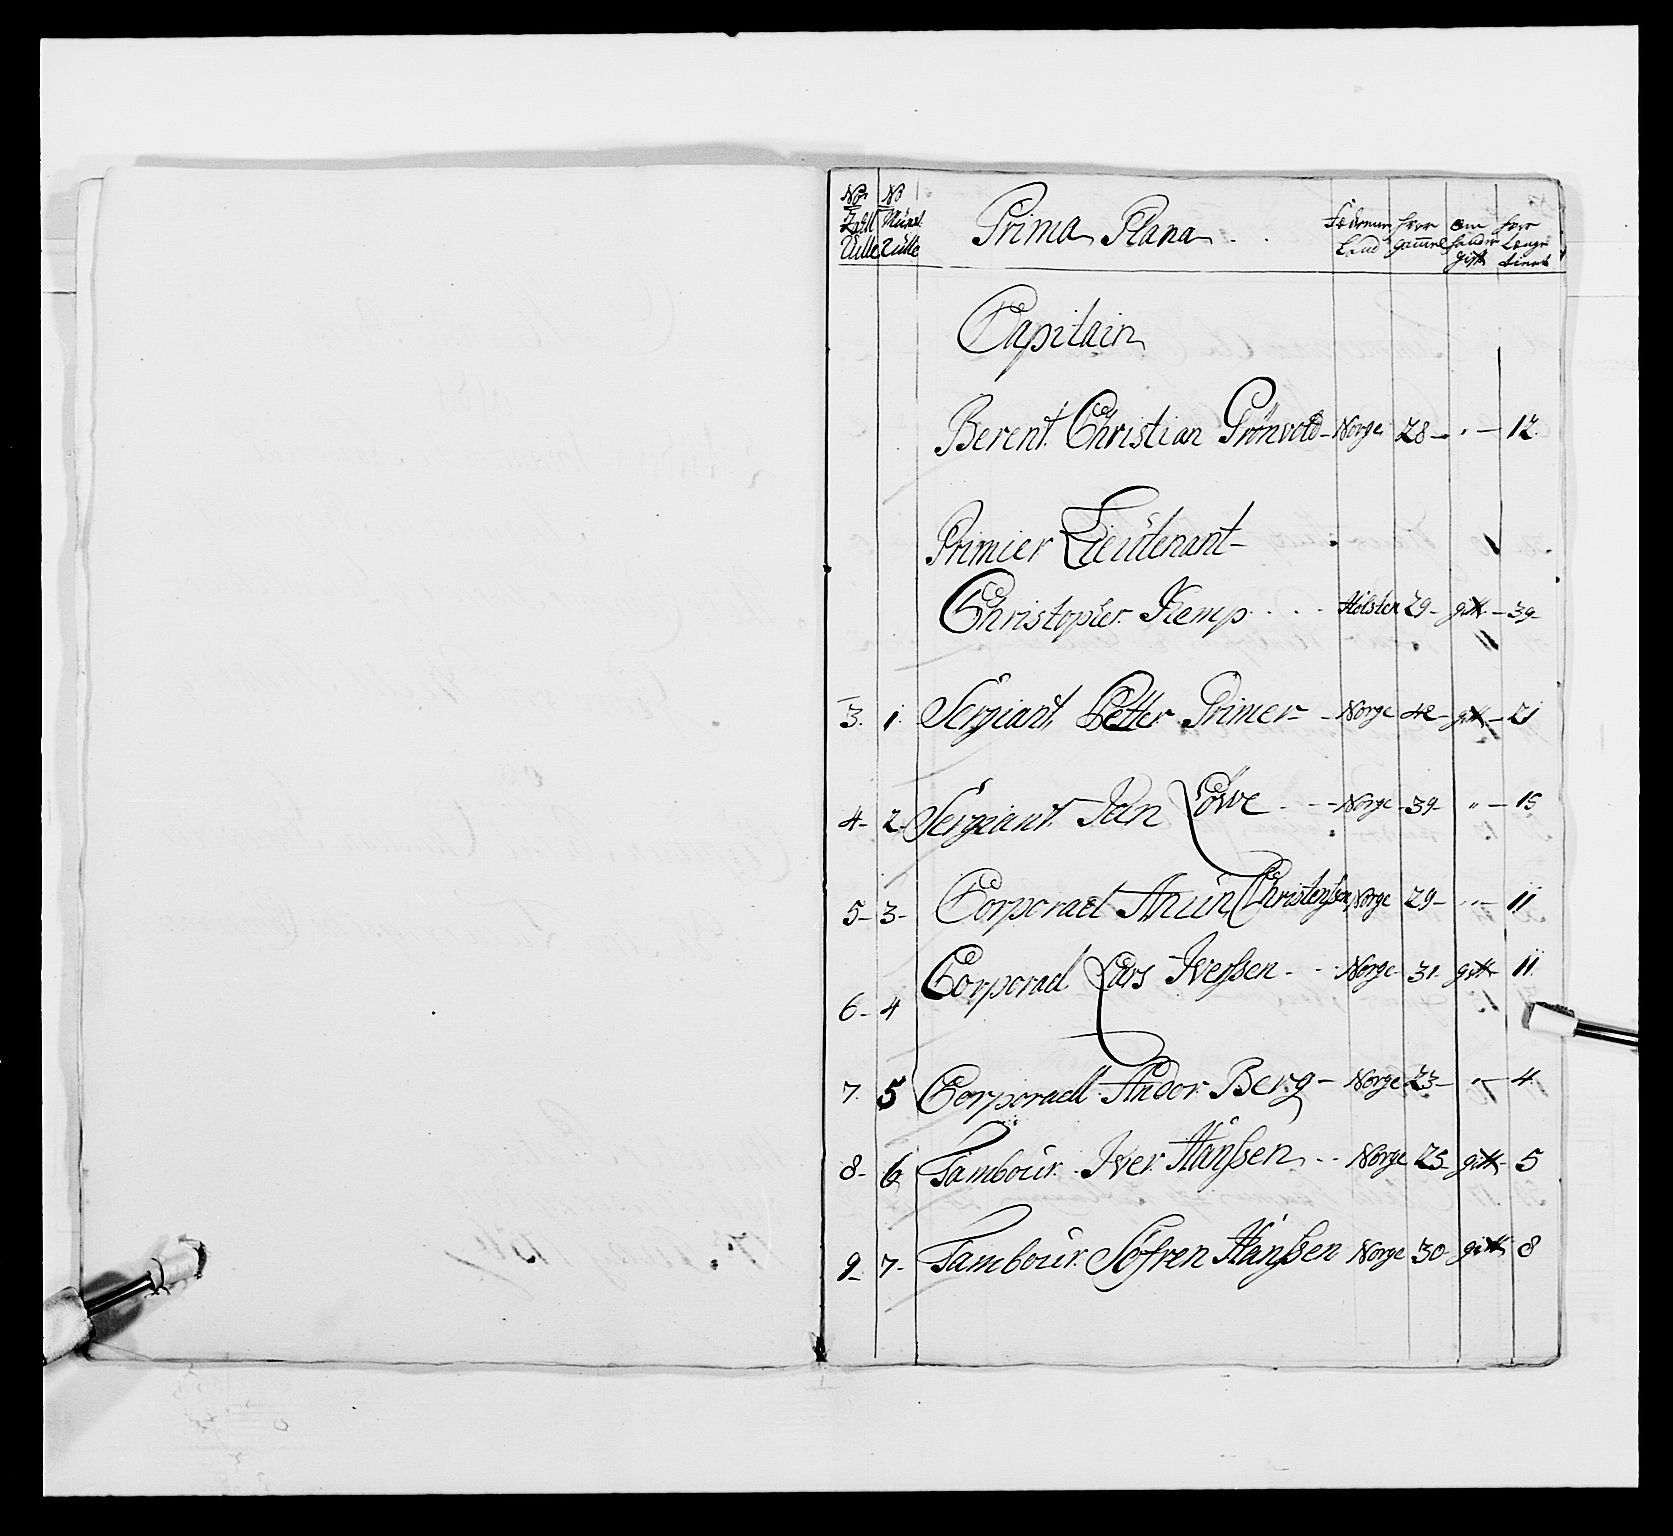 No No Prima Plana Födernem hvor om hvor
Zall Müns. Land gammel hand er Lenge
Rulle Rulle gift tient
Capitain
Berent Christian Grönvold - Norge 28 - " - 12
Primier Lieütenant -
Christopher Kemp . . . Holsten 29 - gitt - 39
3. 1. Sergiant Petter Primer - Norge 42 - gitt - 21
4 - 2 - Sergiant Jan Löwe . - - Norge - 39 - " - 15
5 - 3 - Corporael Anün Christenssen Norge 29 - " - 11
6 - 4 Corporael Lars Iverssen - - Norge 31. gitt 11.
7. 5 Corporaell Andor Berg - Norge 23 - " - 4.
8 - 6 Tambour. Iver Hanssen . - - Norge 25 gitt - 5
9 - 7 - Tambour. Söfren Hanssen Norge 30 gitt 8